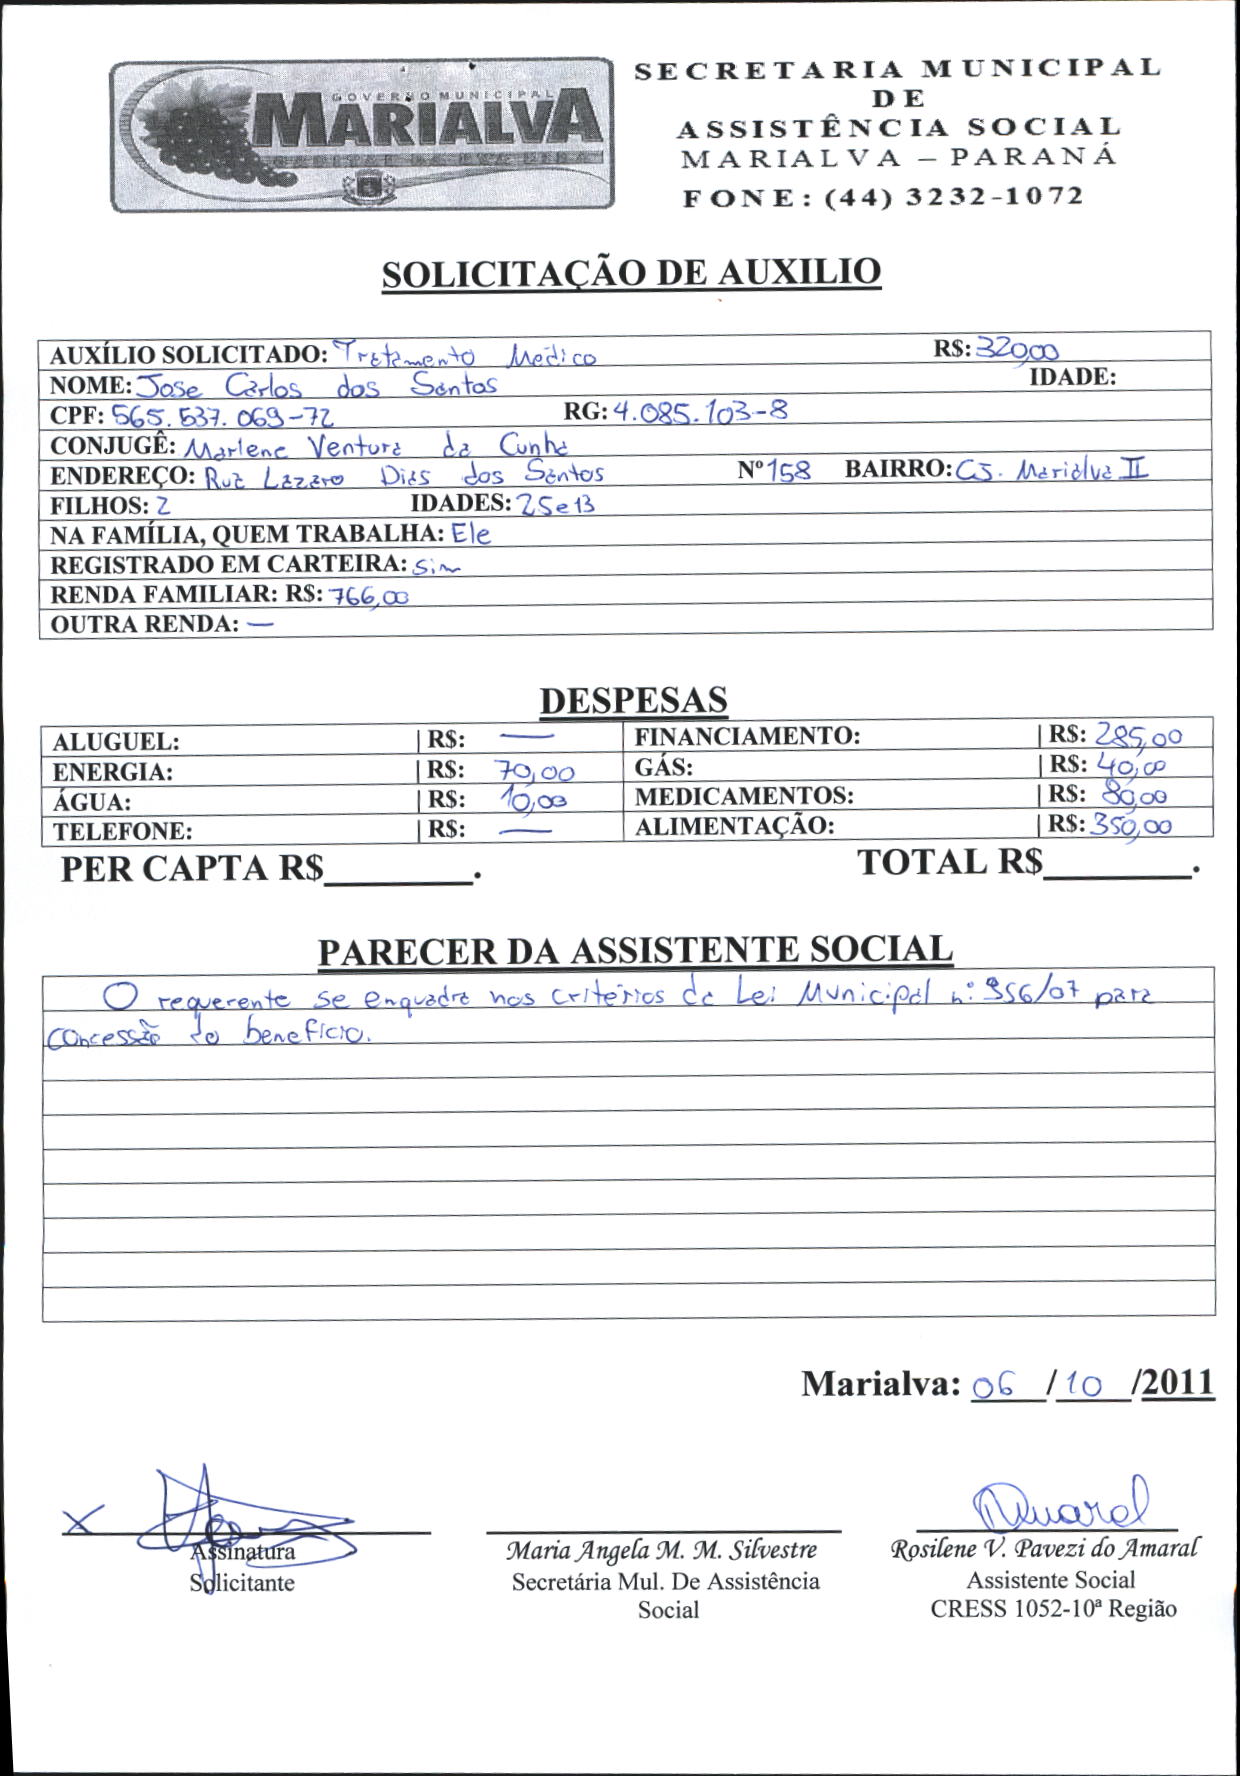 GOVERNO MUNICIPAL
MARIALVA
SECRETARIA MUNICIPAL
DE
ASSISTÊNCIA SOCIAL
MARIALVA – PARANÁ
FONE: (44) 3232-1072
SOLICITAÇÃO DE AUXILIO
AUXÍLIO SOLICITADO: Tratamento Medico R$: 320,00
NOME: Jose Carlos dos Santos IDADE:
CPF: 565.537.069-72 RG: 4.085.103-8
CONJUGÊ: Marlene Ventura da Cunha
ENDEREÇO: Rua Lazaro Dias dos Santos Nº 158 BAIRRO: CJ. Marialva II
FILHOS: 2 IDADES: 25 e 13
NA FAMÍLIA, QUEM TRABALHA: Ele
REGISTRADO EM CARTEIRA: sim
RENDA FAMILIAR: R$: 766,00
OUTRA RENDA: —
DESPESAS
ALUGUEL: | R$: — FINANCIAMENTO: | R$: 285,00
ENERGIA: | R$: 70,00 GÁS: | R$: 40,00
ÁGUA: | R$: 10,00 MEDICAMENTOS: | R$: 80,00
TELEFONE: | R$: — ALIMENTAÇÃO: | R$: 350,00
PER CAPTA R$________. TOTAL R$________.
PARECER DA ASSISTENTE SOCIAL
O requerente se enquadra nos critérios da Lei Municipal nº 956/07 para
concessão do beneficio.
Marialva: 06 /10 /2011
X
Assinatura
Solicitante
Maria Angela M. M. Silvestre
Secretária Mul. De Assistência
Social
Amaral
Rosilene V. Pavezi do Amaral
Assistente Social
CRESS 1052-10ª Região